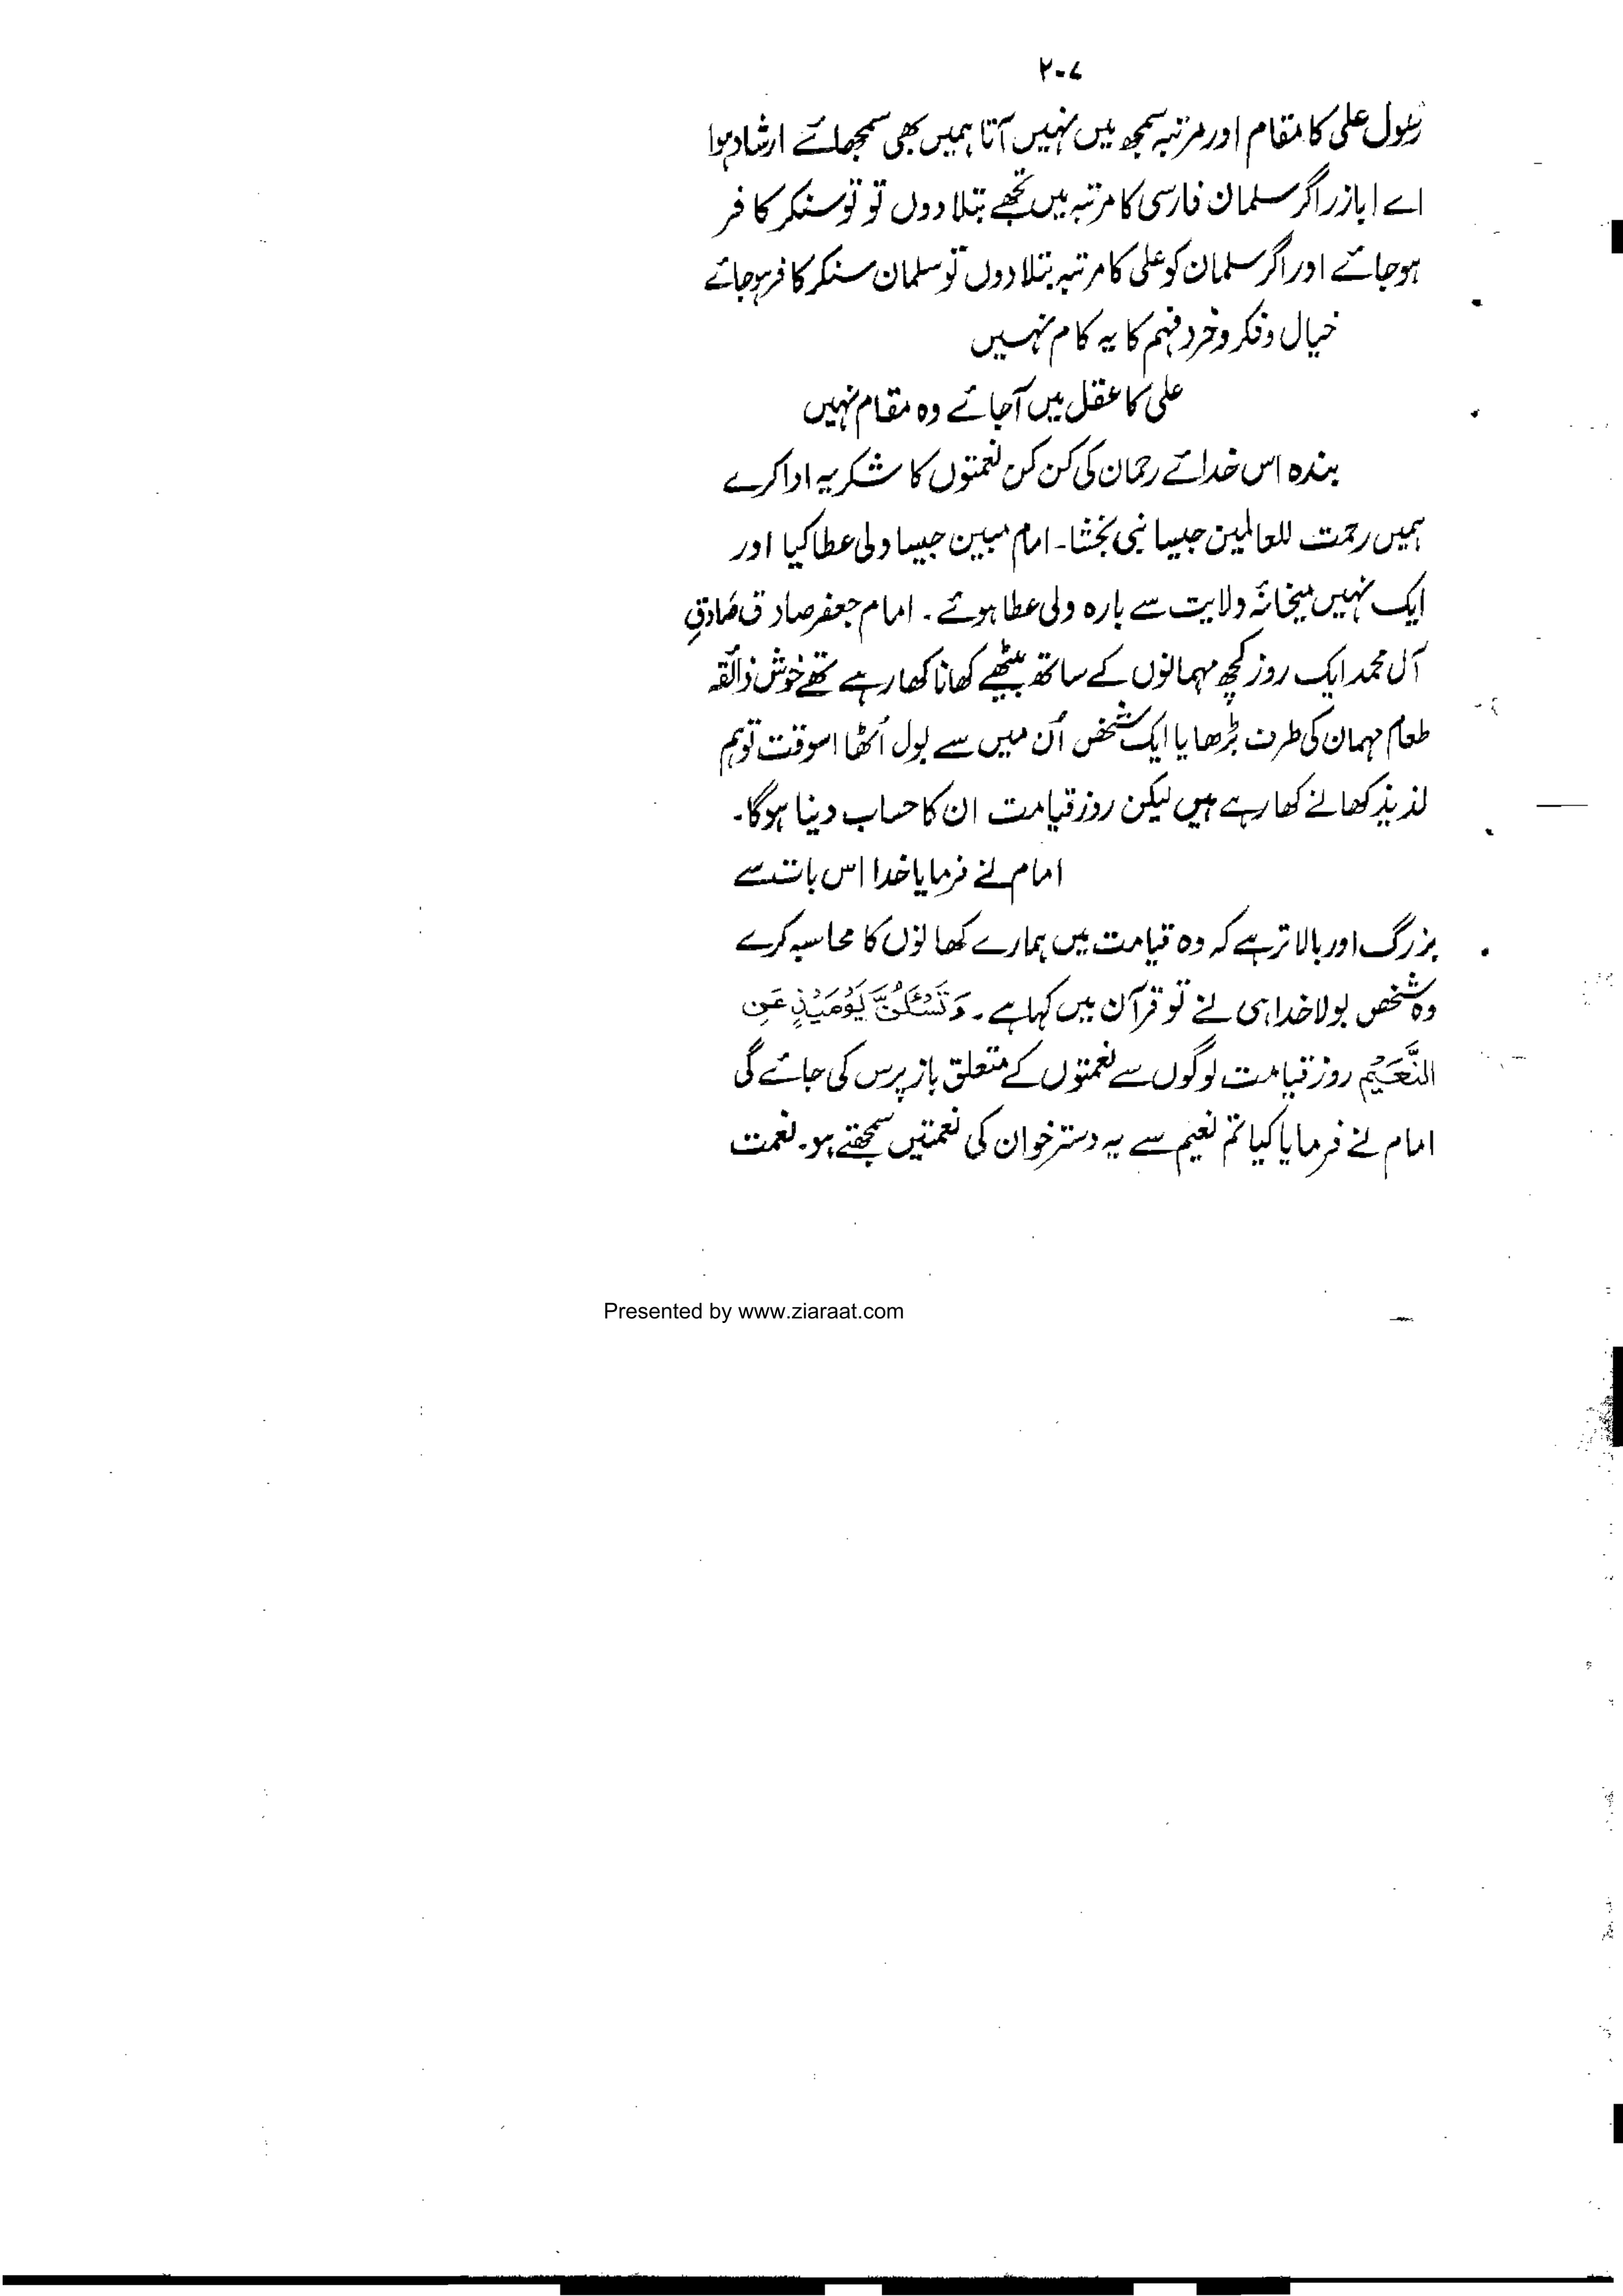 ۲۰۷
رسول علی کا مقام اور مرتبہ سمجھ میں نہیں آتا ہمیں بھی سمجھائے ارشاد ہوا
اے اباذر اگر سلمان فارسی کا مرتبہ میں تجھے بتلا دوں تو تو سنکر کافر
ہوجائے اور اگر سلمان کو علی کا مرتبہ بتلا دوں تو سلمان سنکر کافر ہوجائے
خیال و فکر و خرد فہم کا یہ کام نہیں
علی کا عقل میں آجائے وہ مقام نہیں
بندہ اس خدائے رحمان کی کن کن نعمتوں کا شکریہ ادا کرے
ہمیں رحمت للعالمین جیسا نبی بخشا۔ امام مبین جیسا ولی عطا کیا اور
ایک نہیں میخانۂ ولایت سے بارہ ولی عطا ہوئے۔ امام جعفر صادق صَادقِ
آل محمد ایک روز کچھ مہمانوں کے ساتھ بیٹھے کھانا کھا رہے تھے خوش ذائقہ
طعام مہمان کی طرف بڑھایا ایک شخص اُن میں سے بول اُٹھا اسوقت تو ہم
لذیذ کھانے کھا رہے ہیں لیکن روز قیامت ان کا حساب دینا ہوگا۔
امام نے فرمایا خدا اس بات سے
بزرگ اور بالا تر ہے کہ وہ قیامت میں ہمارے کھانوں کا محاسبہ کرے
وہ شخص بولا خدا ہی نے تو قرآن میں کہا ہے۔ وَتَسْئَلُنَّ يَوْمَئِذٍ عَنِ
النَّعَيْمِ روز قیامت لوگوں سے نعمتوں کے متعلق باز پرس کی جائے گی
امام نے فرمایا کیا تم نعیم سے یہ دسترخوان کی نعمتیں سمجھتے ہو۔ نعمت
Presented by www.ziaraat.com